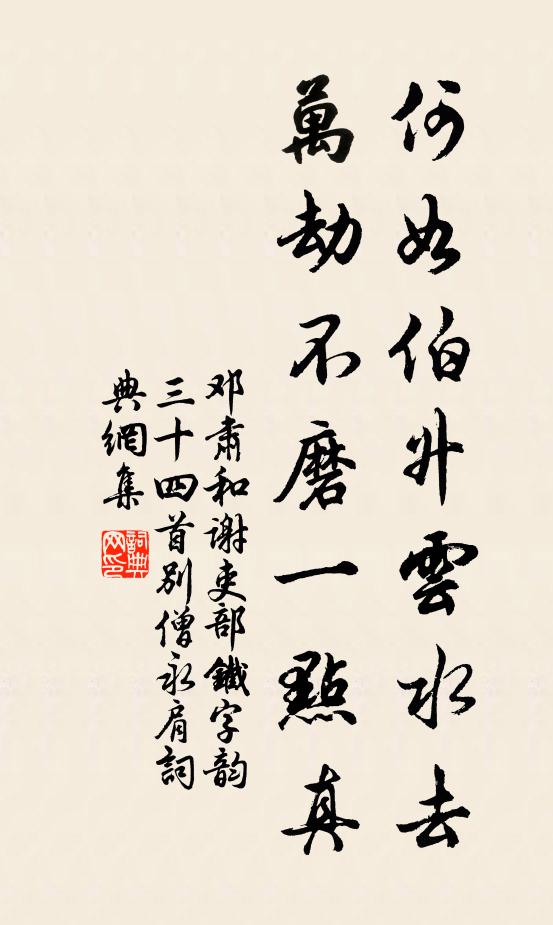 何如伯升雲水去
萬劫不磨一點真
邓肅和谢吏部鐵字韵
三十四首别僧永肩詞
典網集
詞典网印